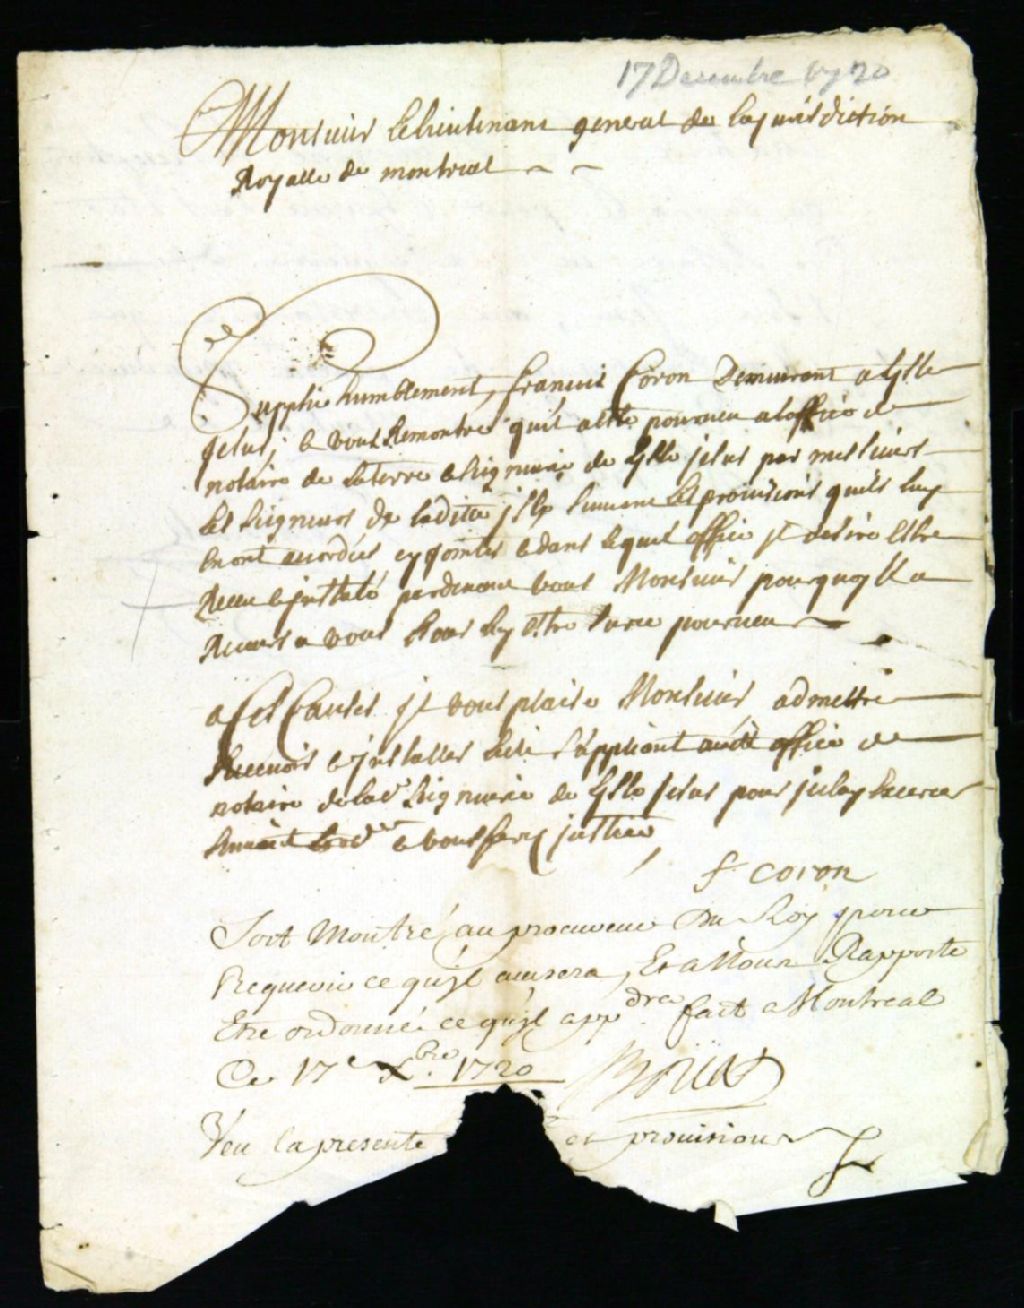 17 Decembre 1720
Monsieur le lieutenant general de la jurisdiction
Royalle de montreal
Supplie humblement, francois Coron Demeurant a lisle
jesus, & vous Remontre quil a esté pourveu a loffice de
notaire de la terre & seigneurie de lisle jesus par messieurs
les seigneurs de ladite isle suivant les provisions quils luy
en ont accordées cy jointes & dans lequel office il desire estre
Receu & installé pardevant vous Monsieur pourquoy il a
Recours a vous pour luy estre sur ce pourveu
a Ces Causes il vous plaise Monsieur admettre
Recevoir & installer ledit suppliant audit office de
notaire de lad seigneurie de lisle jesus pour iceluy exercer
suivant & vous ferez justice
f coron
Soit Montré au procureur Du Roy pour
Requerir ce quil avisera, Et a Nous Rapporté
Etre ordonné ce quil app.dra fait a Montreal
Ce 17e Xbre 1720
Veu la presente et provisions